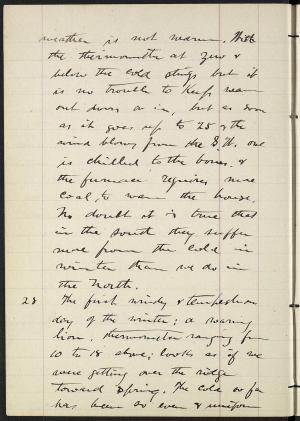 weather is not warm. With
the thermometer at zero &
below the cold stings but it
is no trouble to keep warm
out doors or in, but as soon
as it goes up to 25 & the
wind blows from the S.W. one
is chilled to the bones. &
the furnace requires more
coal, to warm the house.
No doubt it is true that
in the South they suffer
more from the cold in
winter than we do in
the North.
28 The first windy & tempestuous
day of the winter; a roaring
lion. thermometer ranging from
10 to 18 above; looks as if we
were getting over the ridge
toward Spring. The cold so far
has been so even & uniform